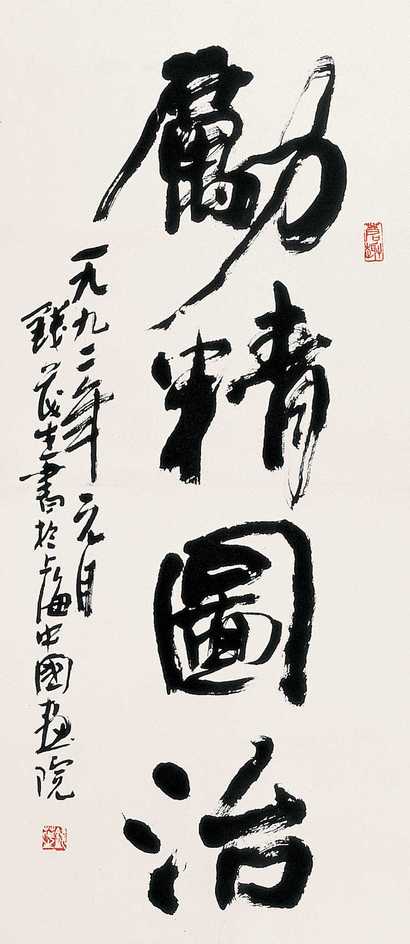 勵精圖治
一九九二年元月
錢茂生書於上海中國畫院